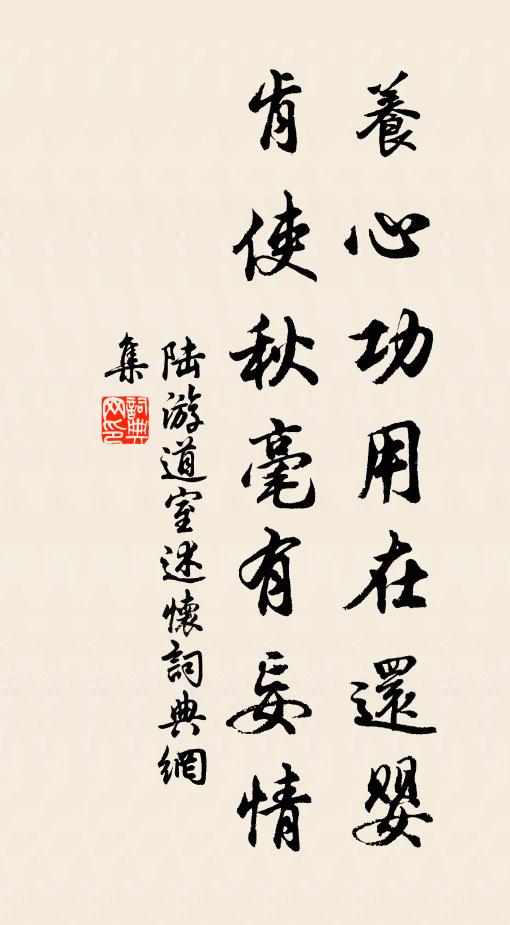 養心功用在還嬰
肯使秋毫有妄情
陆游道室述懷詞典網
集
詞典网印